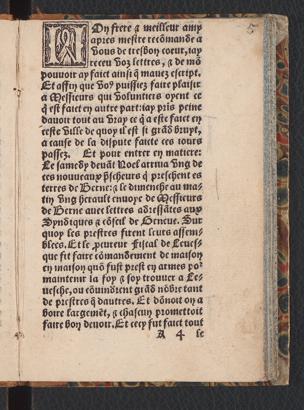 5
MOn frere & meilleur amy
apres mestre recõmande a
vous de tresbon coeur, iay
receu voz lettres, & de mõ
pouuoir ay faict ainsi q̃ mauez escript.
Et affin que vo9 puissiez faire plaisir
a Messieurs qui voluntiers oyent ce
q̃ est faict en autre part: iay pris peine
dauoir tout au vray ce q̃ a este faict en
ceste ville de quoy il est si grãd bruyt,
a cause de la dispute faicte ces iours
passez. Et pour entrer en matiere:
Le samedy deuãt Noel arriua vng de
ces nouueaux p̃scheurs q̃ preschent es
terres de Berne: & le dimenche au ma-
tin vng herault enuoye de Messieurs
de Berne auec lettres adressãtes aux
Syndiques & cõseil de Geneue. Sur
quoy les prestres firent leurs assem-
blees. Et le procureur Fiscal de Leues-
que fit faire cõmandement de maison
en maison quõ fust prest en armes po2
maintenir la foy & soy trouuer a Le-
uesche, ou cõuindrent grãd nõbre tant
de prestres q̃ dautres. Et dõnoit on a
boire largemẽt, & chascun promettoit
faire bon deuoir. Et cecy fut faict tout
A 4 le